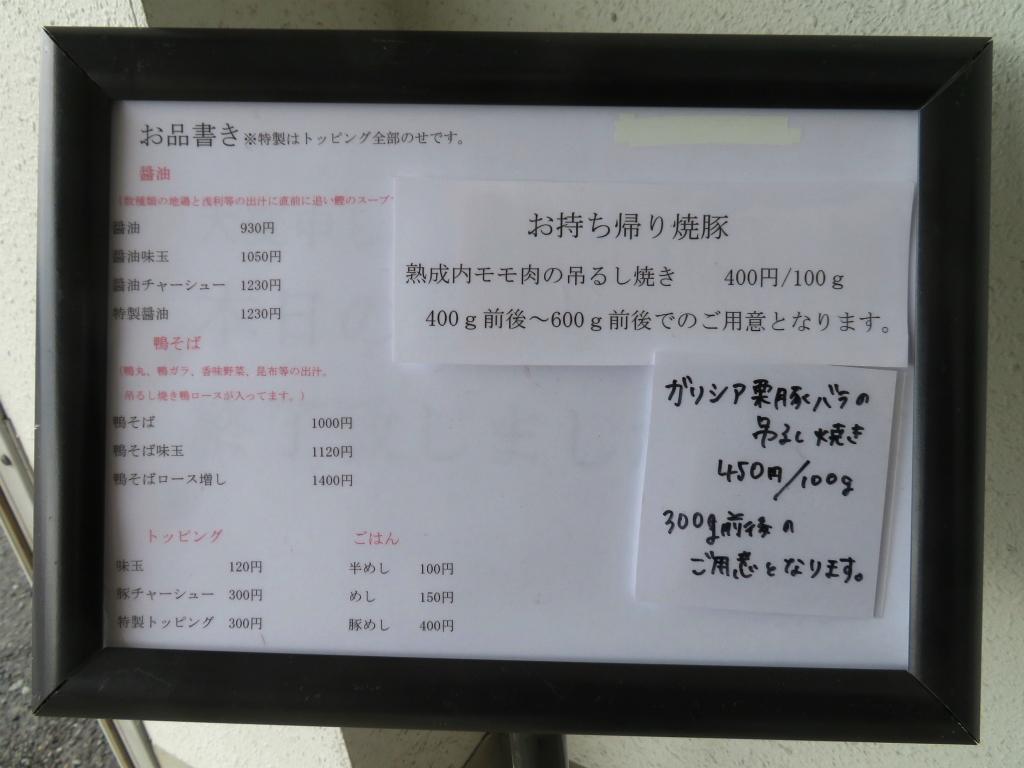 お品書き※特製はトッピング全部のせです。
醤油
(数種類の地鶏と浅利等の出汁に直前に追い鰹のスープ
醤油 930円
醤油味玉 1050円
醤油チャーシュー 1230円
特製醤油 1230円
鴨そば
(鴨丸、鴨ガラ、香味野菜、昆布等の出汁。
吊るし焼き鴨ロースが入ってます。)
鴨そば 1000円
鴨そば味玉 1120円
鴨そばロース増し 1400円
トッピング
味玉 120円
豚チャーシュー 300円
特製トッピング 300円
ごはん
半めし 100円
めし 150円
豚めし 400円
お持ち帰り焼豚
熟成内モモ肉の吊るし焼き 400円/100g
400g前後～600g前後でのご用意となります。
ガリシア栗豚バラの
吊るし焼き
450円/100g
300g前後の
ご用意となります。